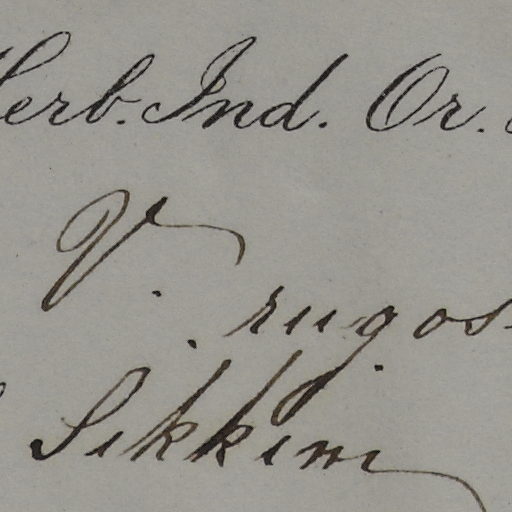 Herb. Ind. Or.
V. rugos
Sikkim